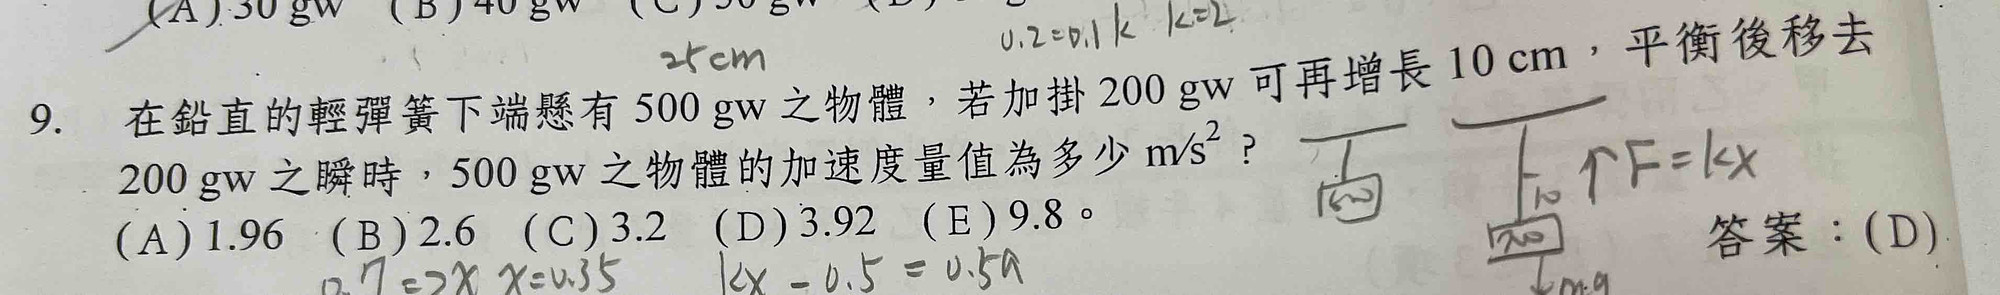 (A) 30 gw (B) 40 gw (C)
0.2=0.1k k=2
25cm
9. 在鉛直的輕彈簧下端懸有 500 gw 之物體，若加掛 200 gw 可再增長 10 cm，平衡後移去
200 gw 之瞬時，500 gw 之物體的加速度量值為多少 m/s² ？
↑F=kx
(A) 1.96 (B) 2.6 (C) 3.2 (D) 3.92 (E) 9.8。
答案：(D)
0.7=2x x=0.35 kx - 0.5 = 0.5a
mg